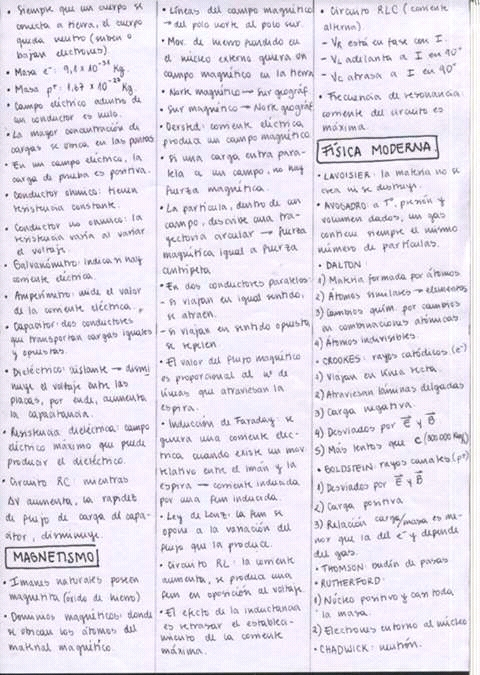 • Siempre que un cuerpo se
conecta a tierra, el cuerpo
queda neutro (suben o
bajan electrones).
• Masa e⁻: 9,1 x 10⁻³¹ Kg.
• Masa p⁺: 1,67 x 10⁻²⁷ Kg.
• Campo eléctrico adentro de
un conductor es nulo.
• La mayor concentración de
cargas se ubica en las puntas
• En un campo eléctrico, la
carga de prueba es positiva.
• Conductor ohmico: tienen
resistencia constante.
• Conductor no ohmico: la
resistencia varía al variar
el voltaje.
• Galvanómetro: indica si hay
corriente eléctrica.
• Amperímetro: mide el valor
de la corriente eléctrica.
• Capacitor: dos conductores
que transportan cargas iguales
y opuestas.
• Dieléctrico: aislante → dismi
nuye el voltaje entre las
placas, por ende, aumenta
la capacitancia.
• Resistencia dieléctrica: campo
eléctrico máximo que puede
producir el dieléctrico.
• Circuito RC: mientras
ΔV aumenta, la rapidez
de flujo de carga del capa-
citor, disminuye.
MAGNETISMO
• Imanes naturales poseen
magnetita (óxido de hierro)
• Dominios magnéticos: donde
se ubican los átomos del
material magnético.
• Líneas del campo magnético
→ del polo norte al polo sur.
• Mov. de hierro fundido en
el núcleo externo genera un
campo magnético en la tierra
• Norte magnético → Sur geográf.
• Sur magnético → Norte geográf.
• Oersted: corriente eléctrica
produce un campo magnético.
• Si una carga entra para-
lela a un campo, no hay
fuerza magnética.
• La partícula, dentro de un
campo, describe una tra-
yectoria circular → fuerza
magnética igual a fuerza
centrípeta
• En dos conductores paralelos:
- si viajan en igual sentido,
se atraen.
- si viajan en sentido opuesto
se repelen.
• El valor del flujo magnético
es proporcional al nº de
líneas que atraviesan la
espira.
• Inducción de Faraday: se
genera una corriente eléc-
trica cuando existe un mov.
relativo entre el imán y la
espira → corriente inducida
por una fem inducida.
• Ley de Lenz: la fem se
opone a la variación del
flujo que la produce.
• Circuito RL: la corriente
aumenta, se produce una
fem en oposición al voltaje.
• El efecto de la inductancia
es retrasar el estableci-
miento de la corriente
máxima.
• Circuito RLC (corriente
alterna)
- VR está en fase con I.
- VL adelanta a I en 90°
- VC atrasa a I en 90°
• Frecuencia de resonancia:
corriente del circuito es
máxima.
FÍSICA MODERNA.
• LAVOISIER: la materia no se
crea ni se destruye.
• AVOGADRO: a Tº, presión y
volumen dados, un gas
contiene siempre el mismo
número de partículas.
• DALTON:
1) Materia formada por átomos
2) Átomos similares → elementos
3) Cambios quím por cambios
en combinaciones atómicas.
4) Átomos indivisibles.
• CROOKES: rayos catódicos (e⁻)
1) Viajan en línea recta.
2) Atraviesan láminas delgadas
3) Carga negativa.
4) Desviados por E⃗ y B⃗
5) Más lentos que c (300 000 Km/s)
• GOLDSTEIN: rayos canales (p⁺)
1) Desviados por E⃗ y B⃗
2) Carga positiva
3) Relación carga/masa es me-
nor que la del e⁻ y depende
del gas.
• THOMSON: budín de pasas
• RUTHERFORD:
1) Núcleo positivo y casi toda
la masa.
2) Electrones entorno al núcleo
• CHADWICK: neutrón.